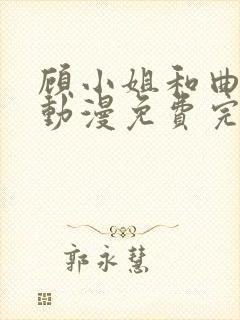 顾小姐和曲
動漫免費完
郭永慧